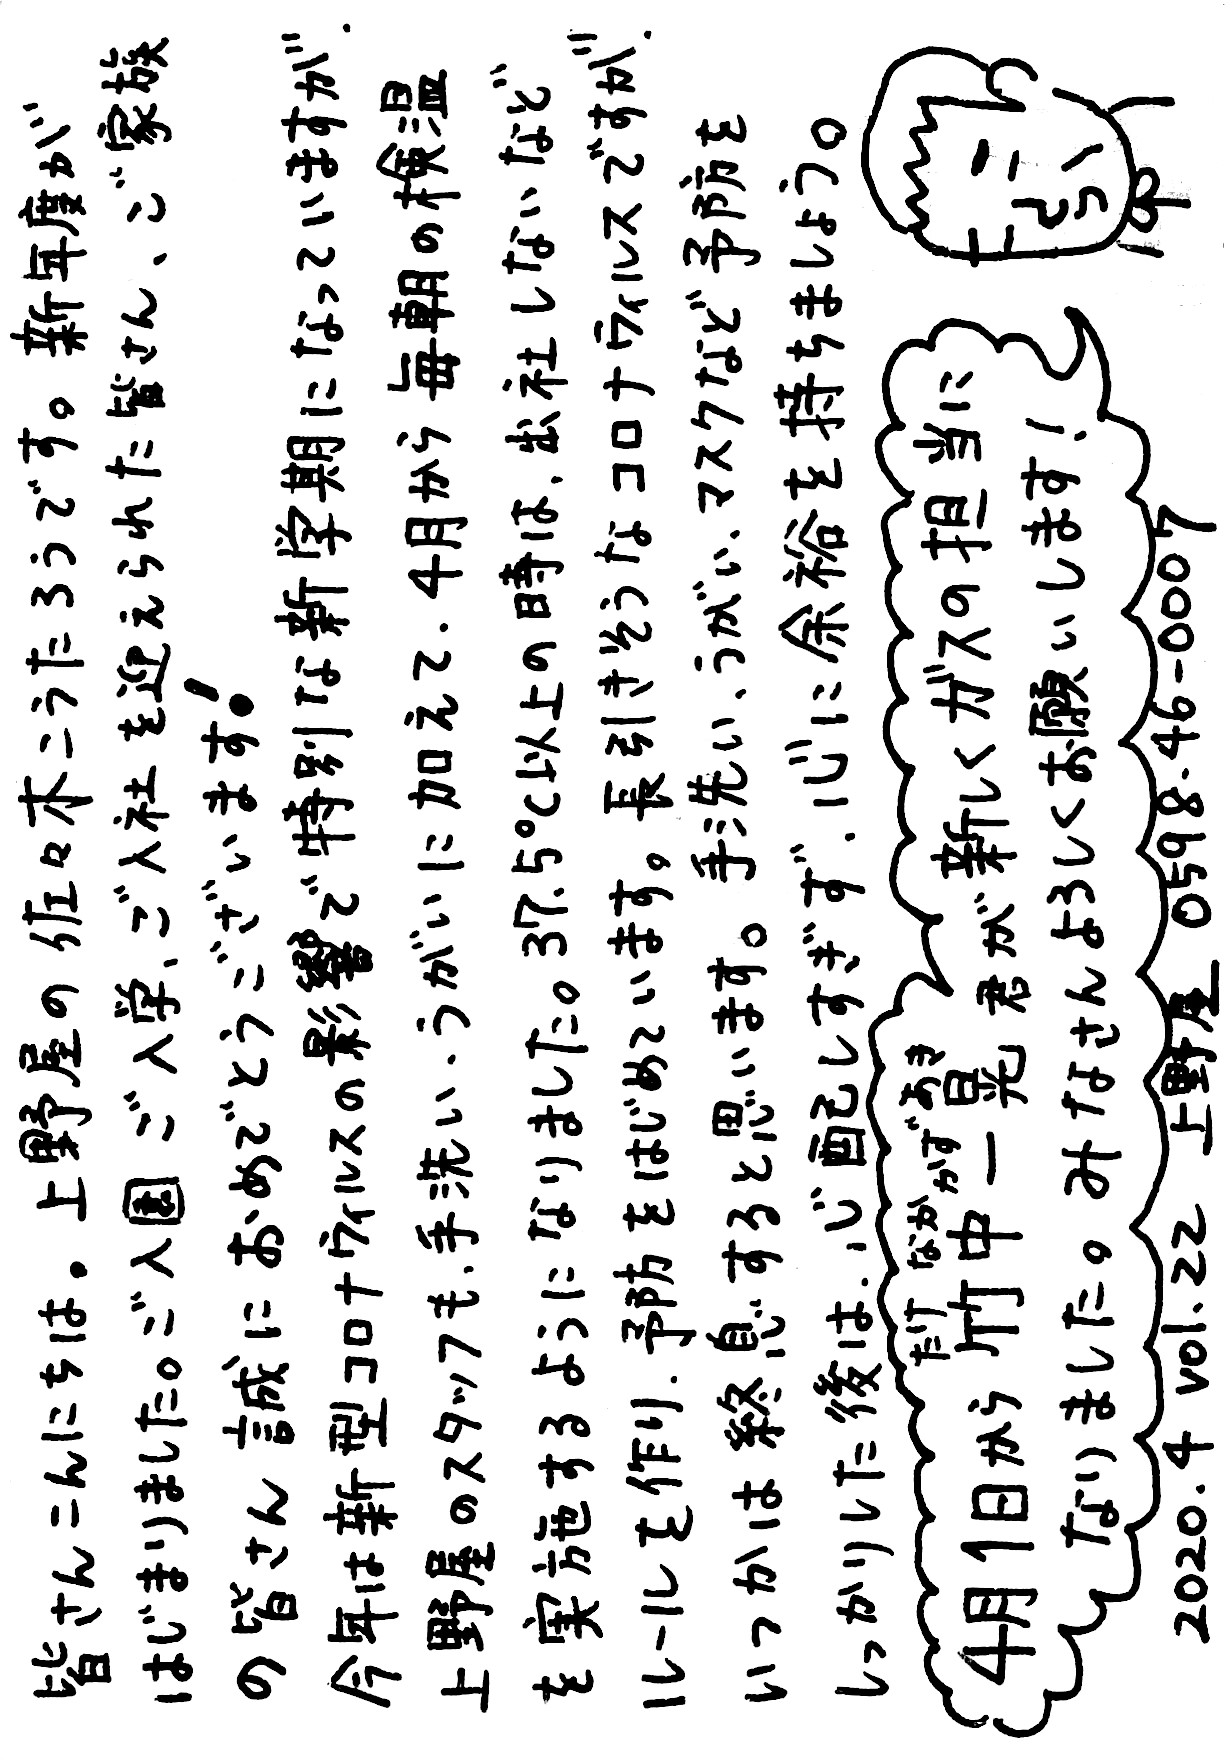 皆さんこんにちは。上野屋の佐々木こうたろうです。新年度が
はじまりました。ご入園、ご入学、ご入社を迎えられた皆さん、ご家族
の皆さん誠におめでとうございます!
今年は新型コロナウィルスの影響で特別な新学期になっていますが、
上野屋のスタッフも、手洗い、うがいに加えて、4月から毎朝の検温
を実施するようになりました。37.5℃以上の時は、出社しないなど
ルールを作り、予防をはじめています。長引きそうなコロナウィルスですが、
いつかは終息すると思います。手洗い、うがい、マスクなど予防を
しっかりした後は、心配しすぎず、心に余裕を持ちましょう。
たけ なか かず あき
4月1日から 竹中一晃君が新しくガスの担当に
なりました。みなさんよろしくお願いします!
2020.4 vol.22 上野屋 0598-46-0007